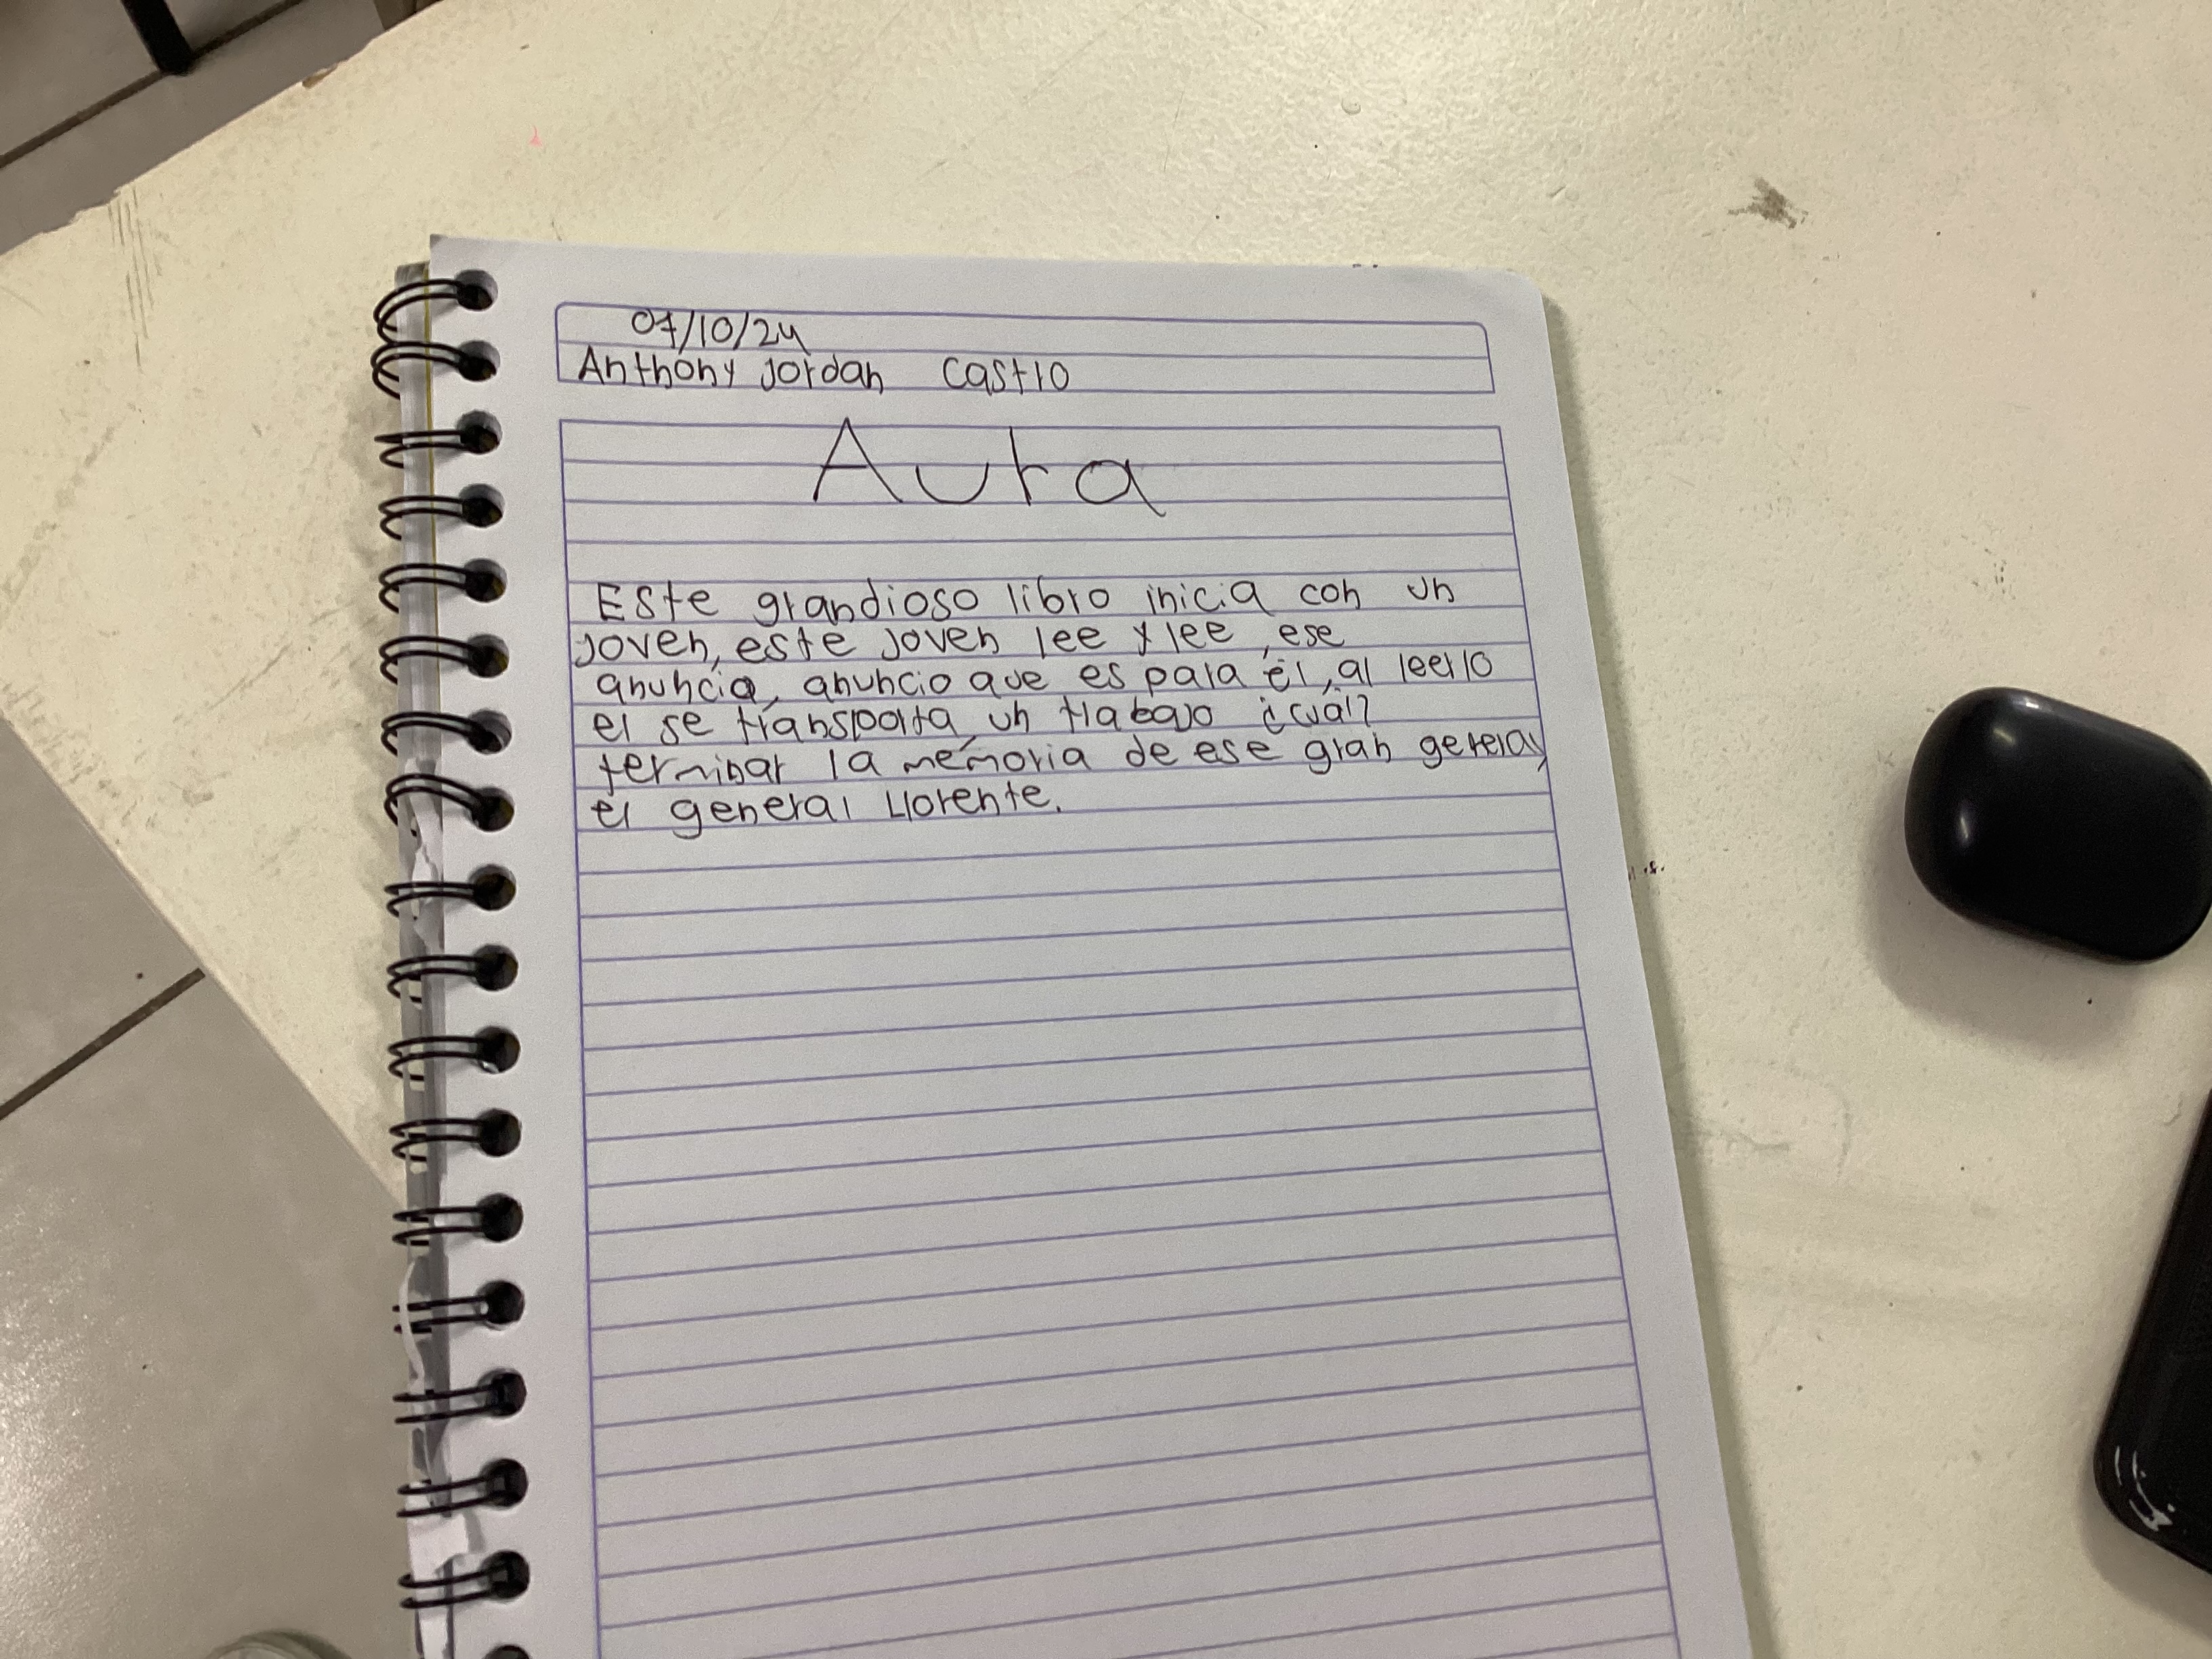 07/10/24
Anthony Jordan Castro
Aura
Este grandioso libro inicia con un
joven, este joven lee y lee, ese
anuncia, anuncio que es para él, al leerlo
el se transporta, un trabajo ¿cuál?
terminar la mémoria de ese gran general,
el general Llorente.